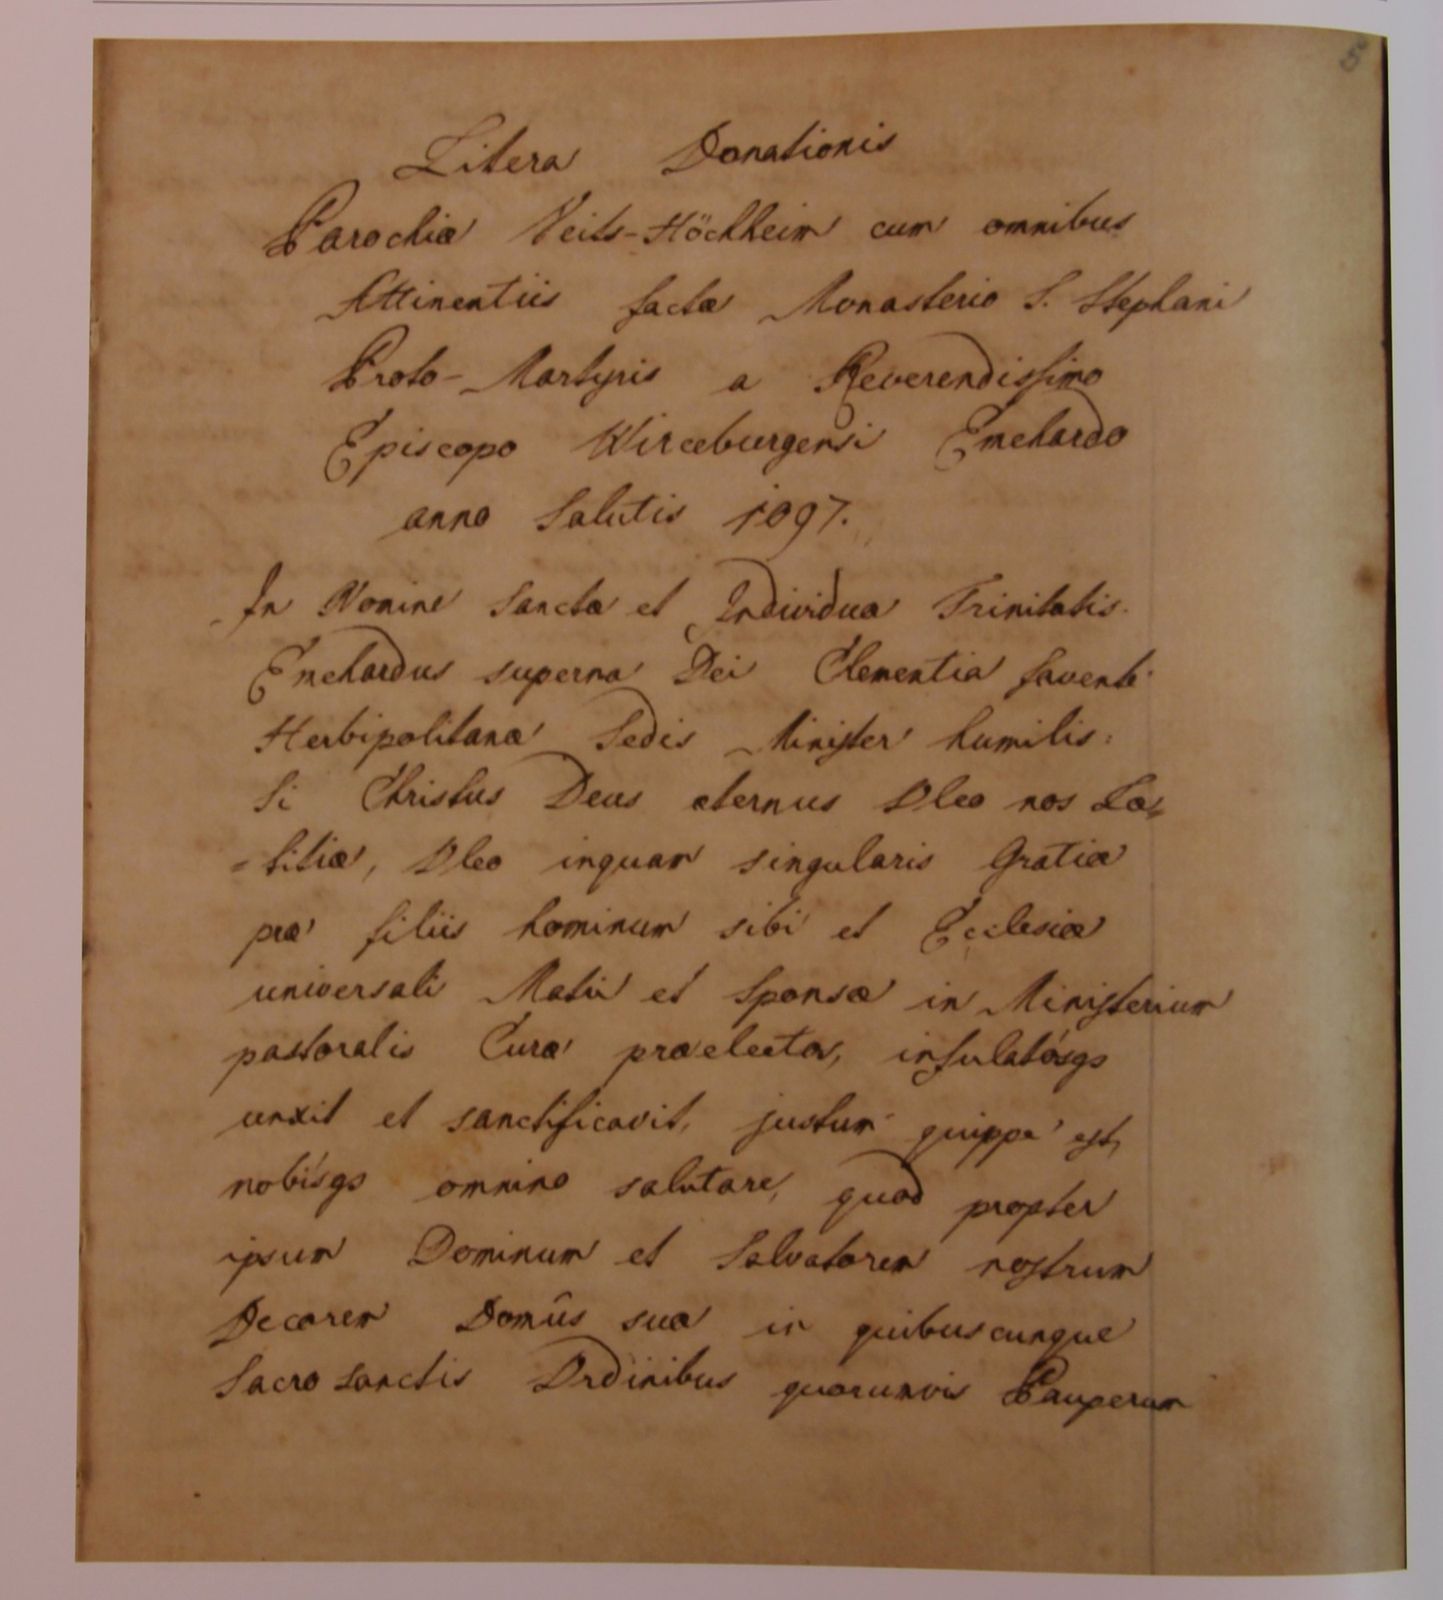 5
Litera Donationis
Parochiæ Veits-Höchheim cum omnibus
Attinentiis factæ Monasterio S. Stephani
Proto-Martyris a Reverendissimo
Episcopo Wirceburgensi Emehardo
anno Salutis 1097.
In Nomine Sanctæ et Individuæ Trinitatis.
Emehardus superna Dei Clementia favente
Herbipolitanæ Sedis Minister humilis:
Si Christus Deus æternus Oleo nos Læ-
-titiæ, Oleo inquam singularis Gratiæ
præ filiis hominum sibi et Ecclesiæ
universali Matri et Sponsæ in Ministerium
pastoralis Curæ præelectos,
unxit et sanctificavit, justum quippe est,
nobísqs omnino salutare, quod propter
ipsum Dominum et Salvatorem nostrum
Decorem Domûs suæ in quibuscunque
Sacrosanctis Ordinibus quorumvis Pauperum